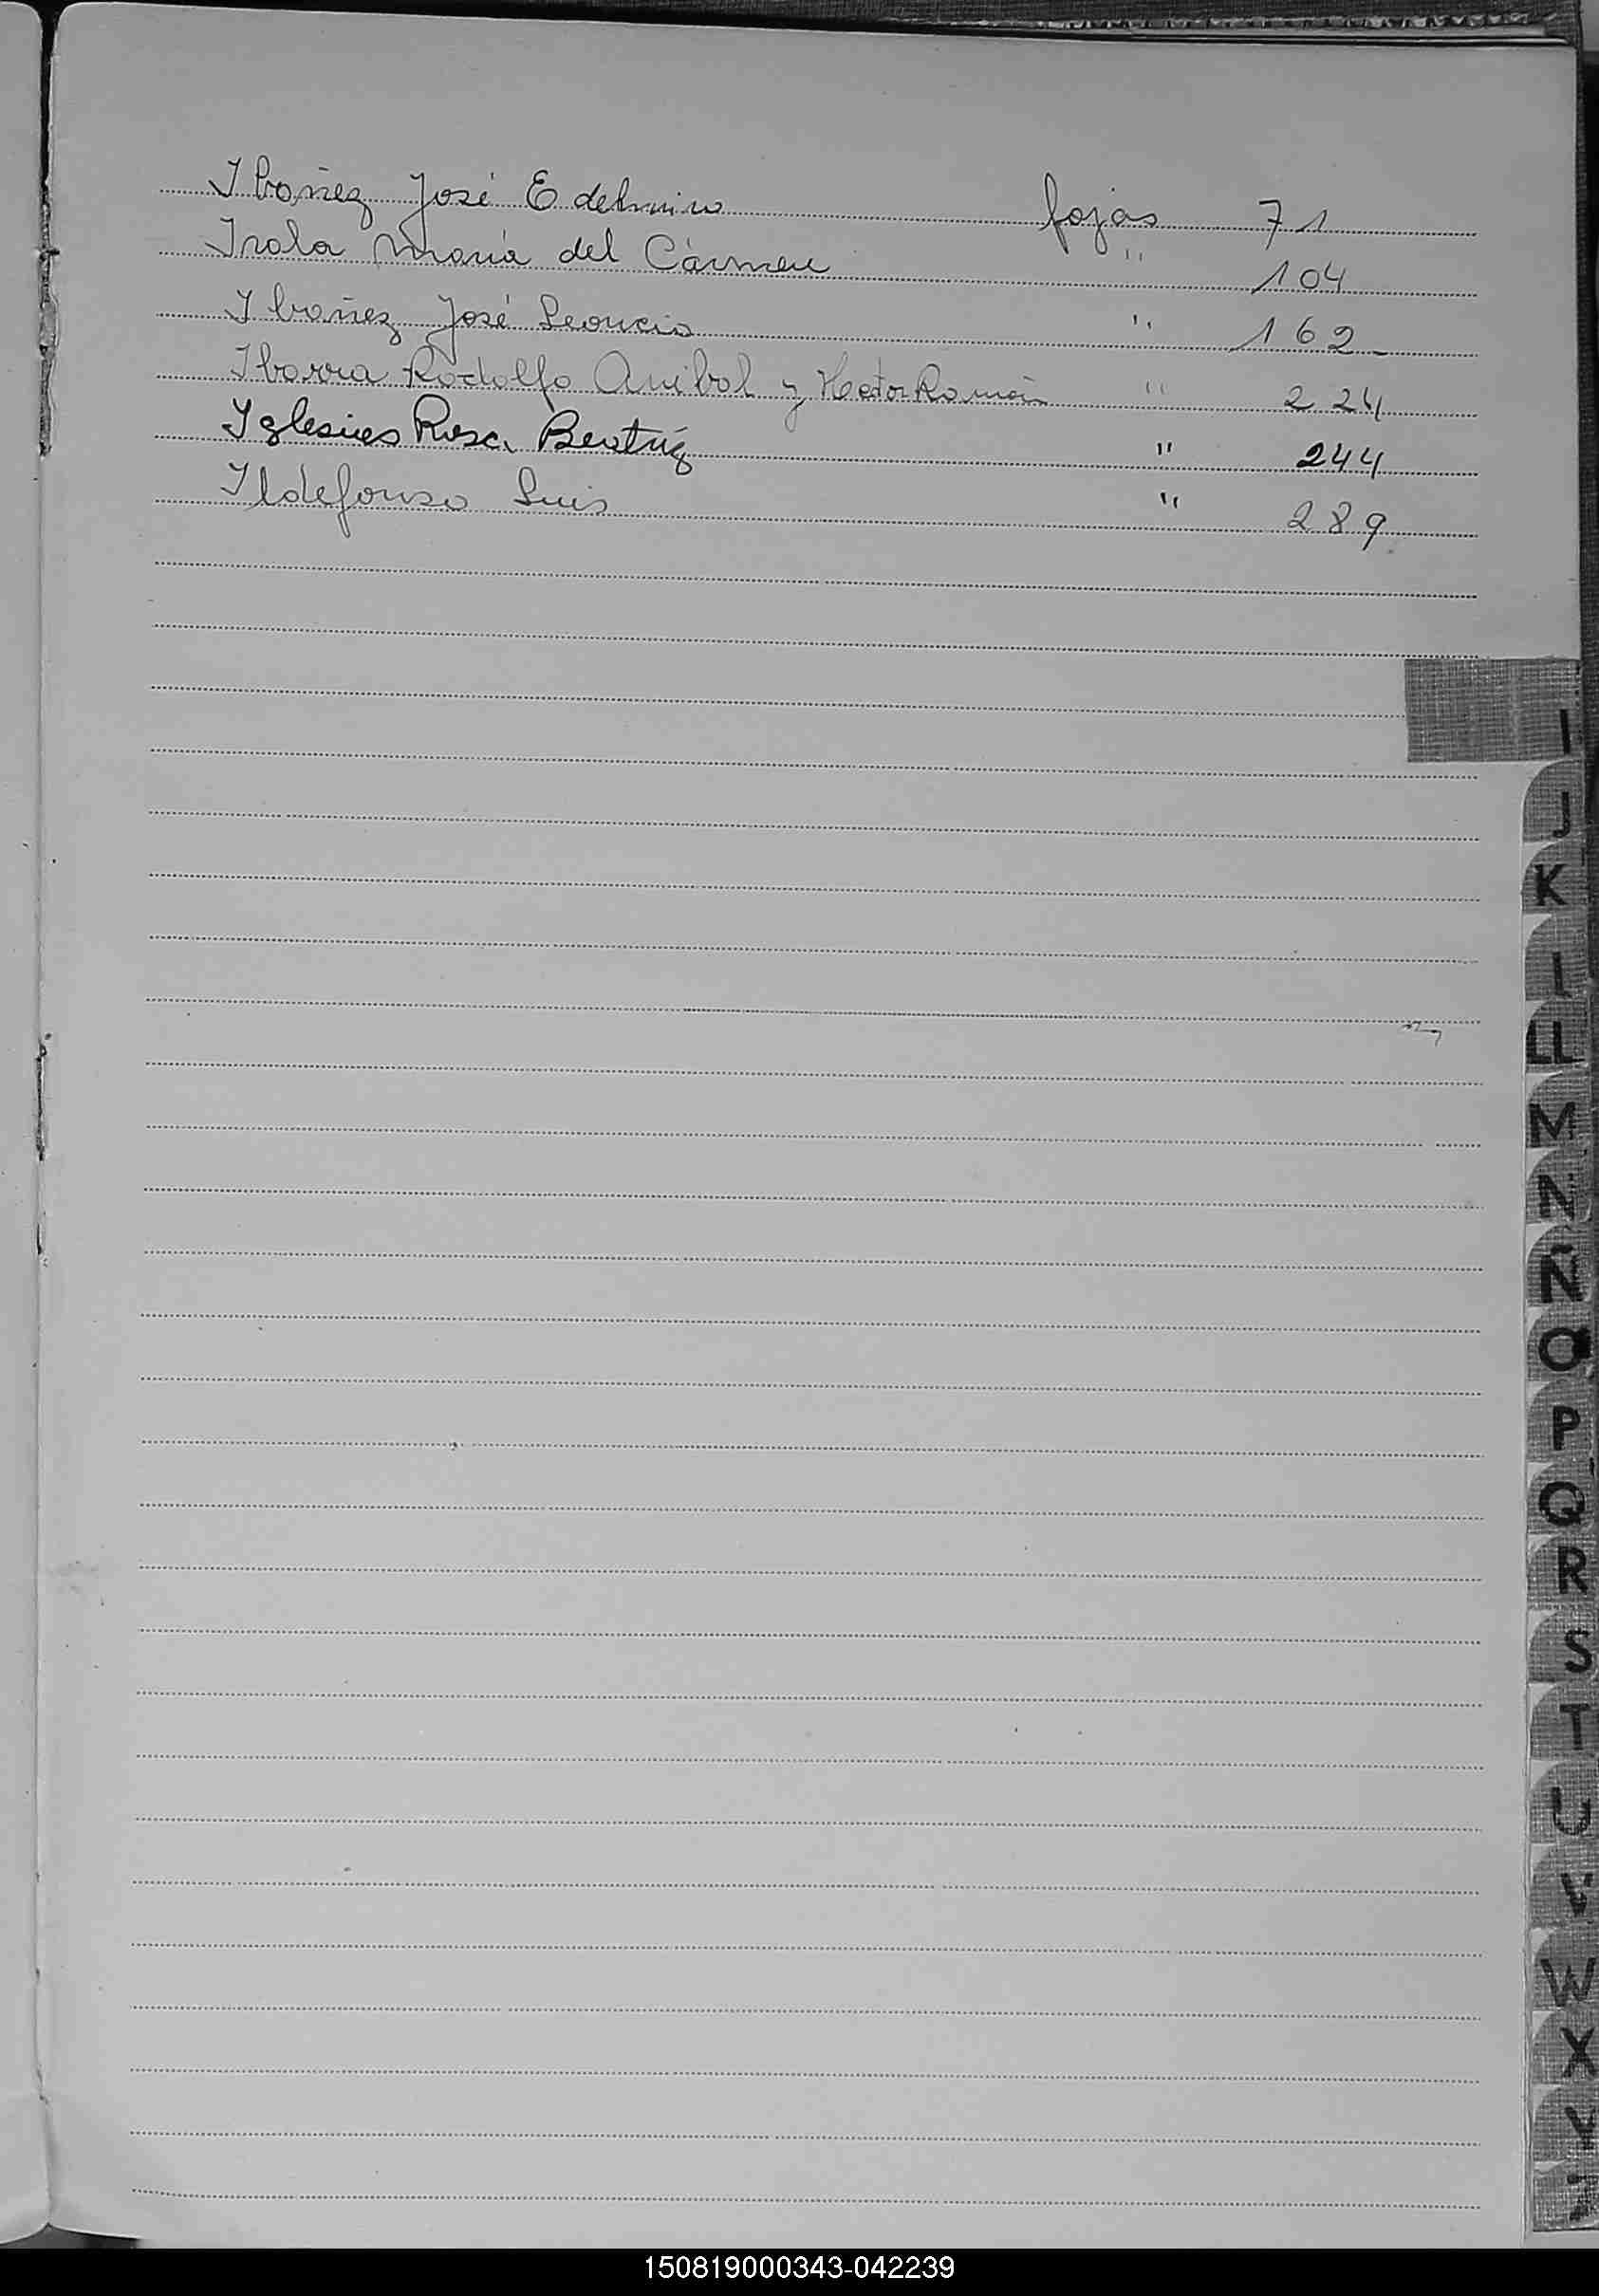 Ibañez José Edelmiro fojas 71
Irola María del Cármen " 104
Ibañez José Leoncio " 162
Ibarra Rodolfo Anibal y Hector Román " 224
Iglesias Rosa Beatríz " 244
Ildefonso Luis " 289
I
J
K
L
LL
M
N
Ñ
O
P
Q
R
S
T
U
V
W
X
Y
Z
150819000343-042239